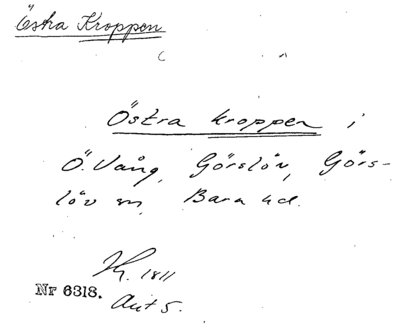 Östra Kroppen
Östra kroppen i
Ö. Vång, Görslöv, Görs-
löv sn, Bara hd.
1811
Nr 6318.
Akt 5.